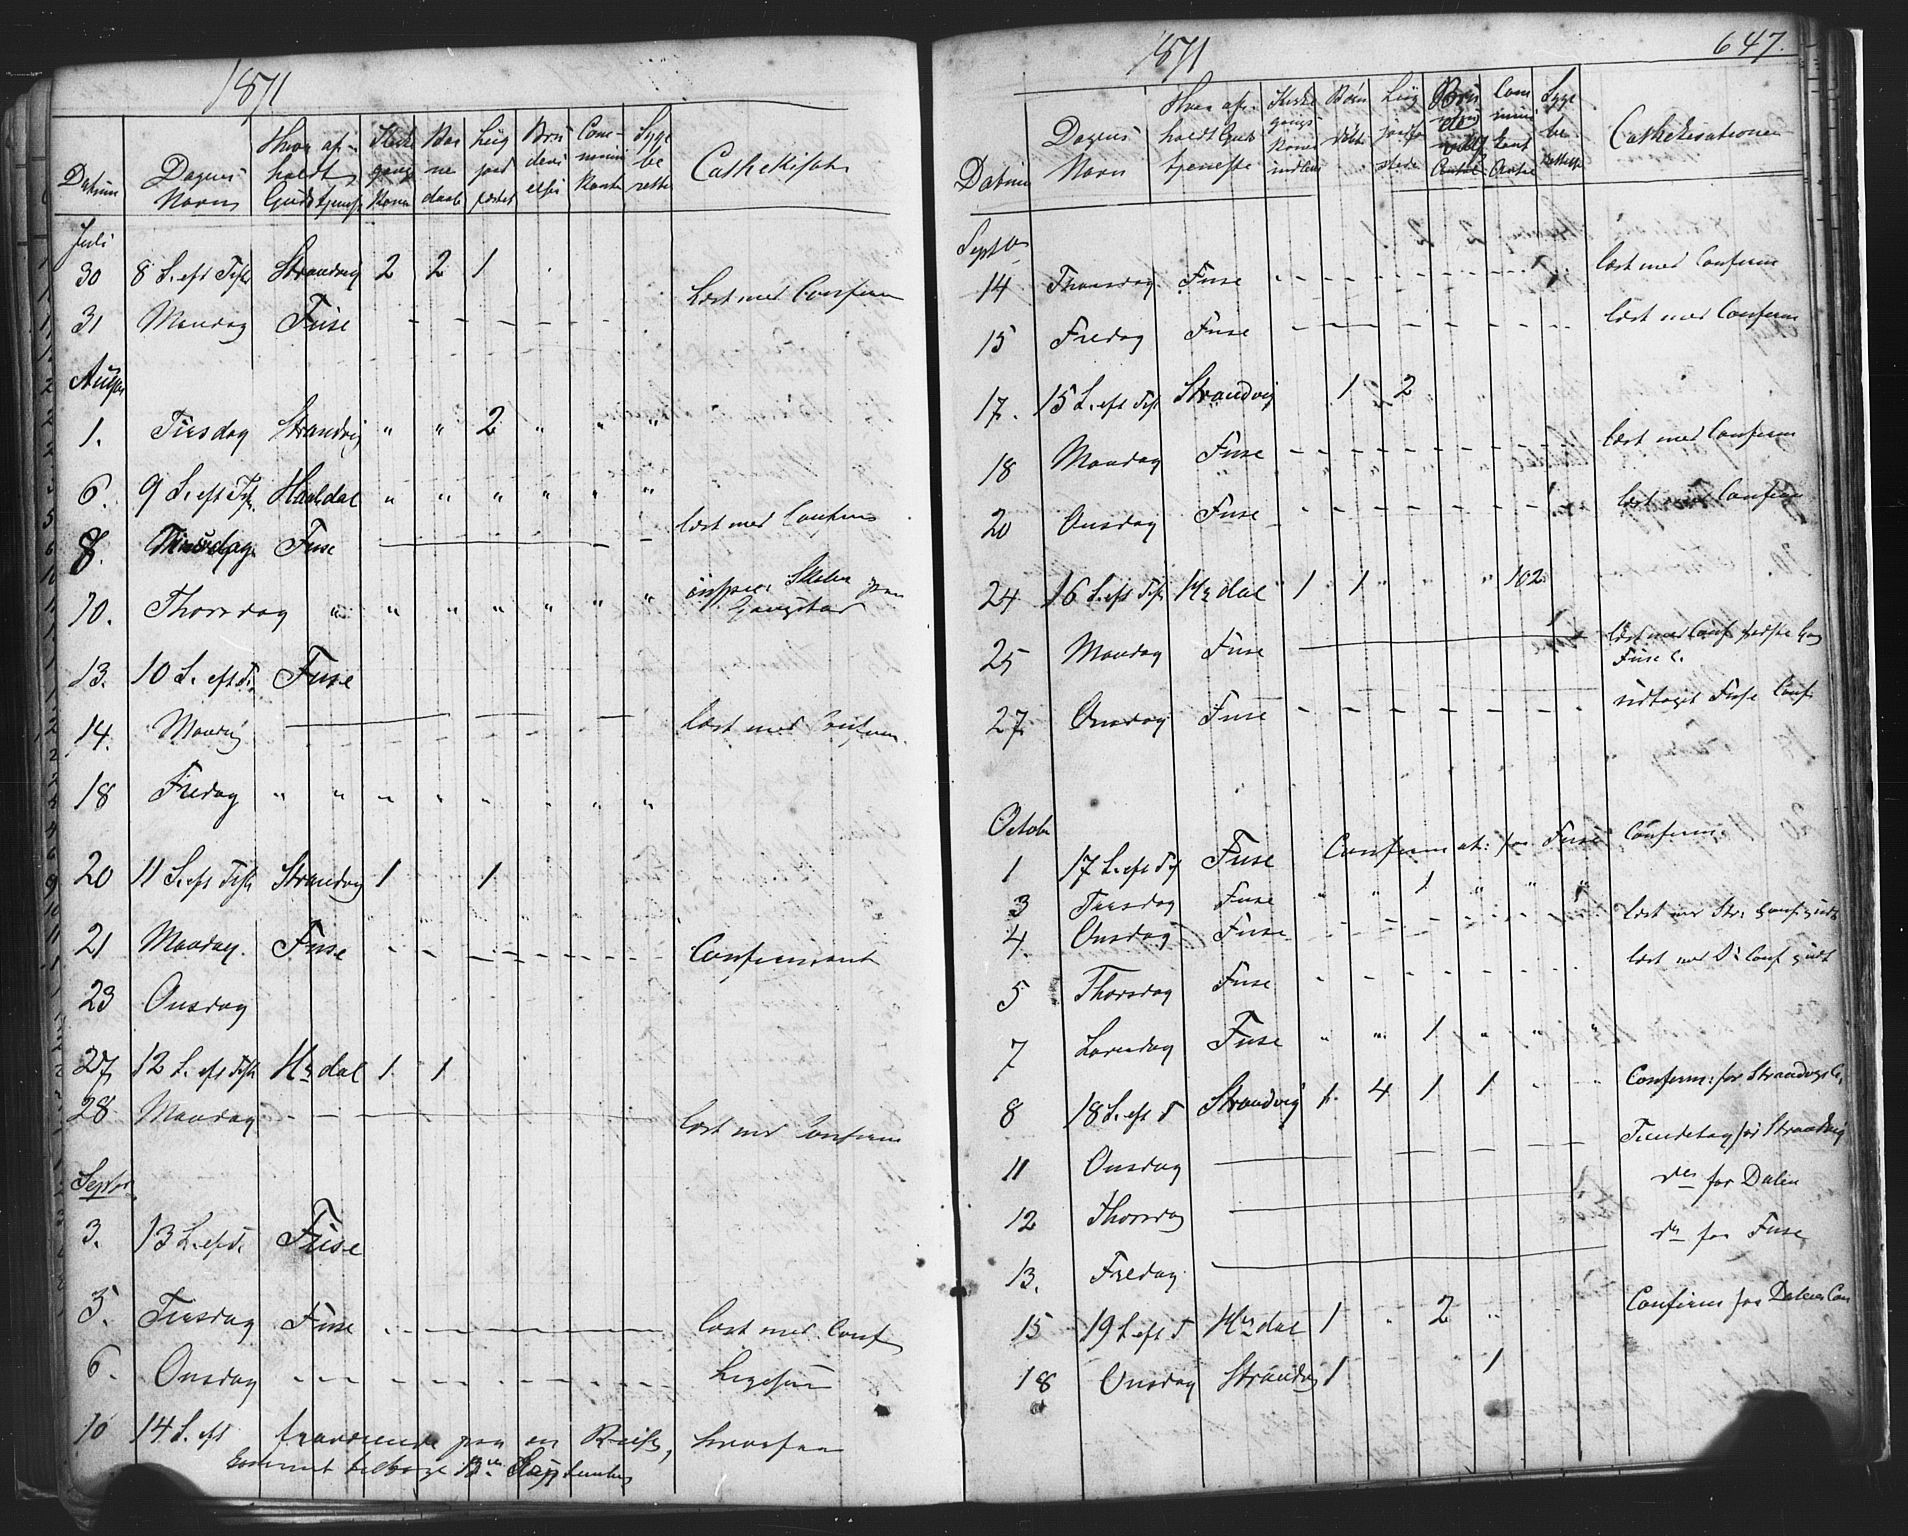 1871
Datum Dagens Navn Hvor afholdt Gudstjeneste Kirkegangs Koner Barnedaab Liig jordfæstet Brudevielser Communikanter Syge berettet
Juli
30 8 S. eft Tr Strandvig 2 2 1
31 Mandag Fuse læst med Confirm
August
1. Tirsdag Strandvig " " 2 " " "
6. 9 S. eft Tr. Haaldal " " " " " "
8. Fuse læst med Confirm
10. Thorsdag " " " " " " "
13. 10 S. eft T. Fuse
14. Mandag læst med Confirm.
18 Fredag " " " " " " " "
20 11 S. eft Tr Strandvig 1 1
21 Mandag. Fuse Confirmant
23 Onsdag
27 12 S. eft Tr Hdal 1 1
28 Mandag læst med Confirm
Septbr
3. 13 S. eft T. Fuse
5. Tirsdag Fuse læst med Conf
6. Onsdag Ligesaa
10 14 S. eft fraværende paa en Reise,
kommet tilbage 13de September
1871
647.
Datum Dagens Navn Hvor afholdt Gudstjeneste Kirkegangs Koner Børn døbt Liig jordfæstede Communikant Antal Syge berettet Cathekisationen
Septbr
14 Thorsdag Fuse læst med Confirm
15 Fredag Fuse læst med Confirm
17. 15 S. eft Tr Strandvig 1 2
18 Mandag Fuse læst med Confirm
20 Onsdag Fuse læst med Confirm
24 16 S. eft Tr Hdal 1 1 " " " 102
25 Mandag Fuse læst med Conf sidste Gang
Fuse C.
27 Onsdag Fuse udtaget Fuse Conf
Octobr
1 17 S. eft Tr Fuse Confirmat: for Fuse Confirm.
3 Tirsdag Fuse " " 1 " " "
4. Onsdag Fuse læst med Str. Conf: sidst
5 Thorsdag Fuse læst med D: Conf sidst
7 Løverdag Fuse " " 1 " " "
8 18 S. eft T Strandvig 1. 4 1 1 Confirm: for Strandvigs C.
11 Onsdag Tiendetag for Strandvig
12 Thorsdag do for Dalen
13. Fredag do for Fuse
15 19 S. eft T Hdal 1 " 2 " Confirm for Dalens Con
18 Onsdag Strandvig 1 1